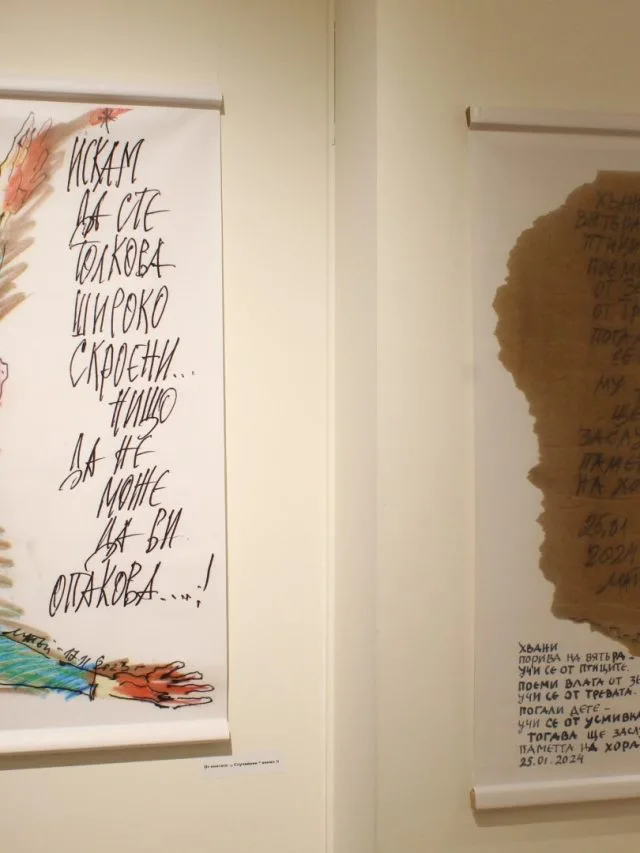 ИСКАМ
ДА СТЕ
ТОЛКОВА
ШИРОКО
СКРОЕНИ...
НИЩО
ДА НЕ
МОЖЕ
ДА ВИ
ОПАКОВА....!
ХВАНИ
ВЯТЪРА
ПТИЦ
ПОЕМ
ОТ ЗЕ
ОТ ТР
ПОГАЛ
СЕ
МУ
ЩЕ
ЗАСЛУ
ПАМЕТ
НА ХО
25.01
2024
МАТ
ХВАНИ
ПОРИВА НА ВЯТЪРА –
УЧИ СЕ ОТ ПТИЦИТЕ.
ПОЕМИ ВЛАГА ОТ ЗЕ
УЧИ СЕ ОТ ТРЕВАТА.
ПОГАЛИ ДЕТЕ –
УЧИ СЕ ОТ УСМИВКА
ТОГАВА ЩЕ ЗАСЛУ
ПАМЕТТА НА ХОРА
25.01.2024